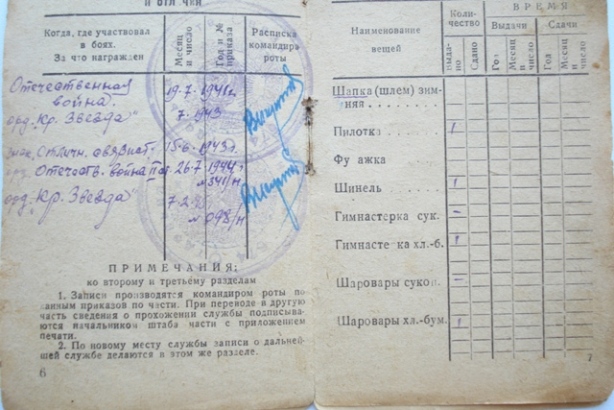 и отлички
Когда, где участвовал
в боях.
За что награжден
Месяц
и число
Год и №
приказа
Расписка
командира
роты
Отечественная
война.
19.7. 1941г.
орд. „Кр. Звезда"
7. 1943
Отличн. связист.
15.6. 1943г.
Отечеств. война II
26.7 1944г
341/н
орд. „Кр. Звезда"
098/н
ПРИМЕЧАНИЯ:
ко второму и третьему разделам
1. Записи производятся командиром роты по
данным приказов по части. При переводе в другую
часть сведения о прохожении службы подписыва-
ются начальником штаба части с приложением
печати.
2. По новому месту службы записи о дальней-
шей службе делаются в этом же разделе.
6
Наименование
вещей
Коли-
чество
ВРЕМЯ
Выдачи
Сдачи
Выда-
но
Сдано
Год
Месяц
и
число
Год
Месяц
и
число
Шапка (шлем) зим-
няя
Пилотка
Фу ажка
Шинель
Гимнастерка сук.
Гимнасте ка хл.-б.
Шаровары сукон.
Шаровары хл.-бум.
7